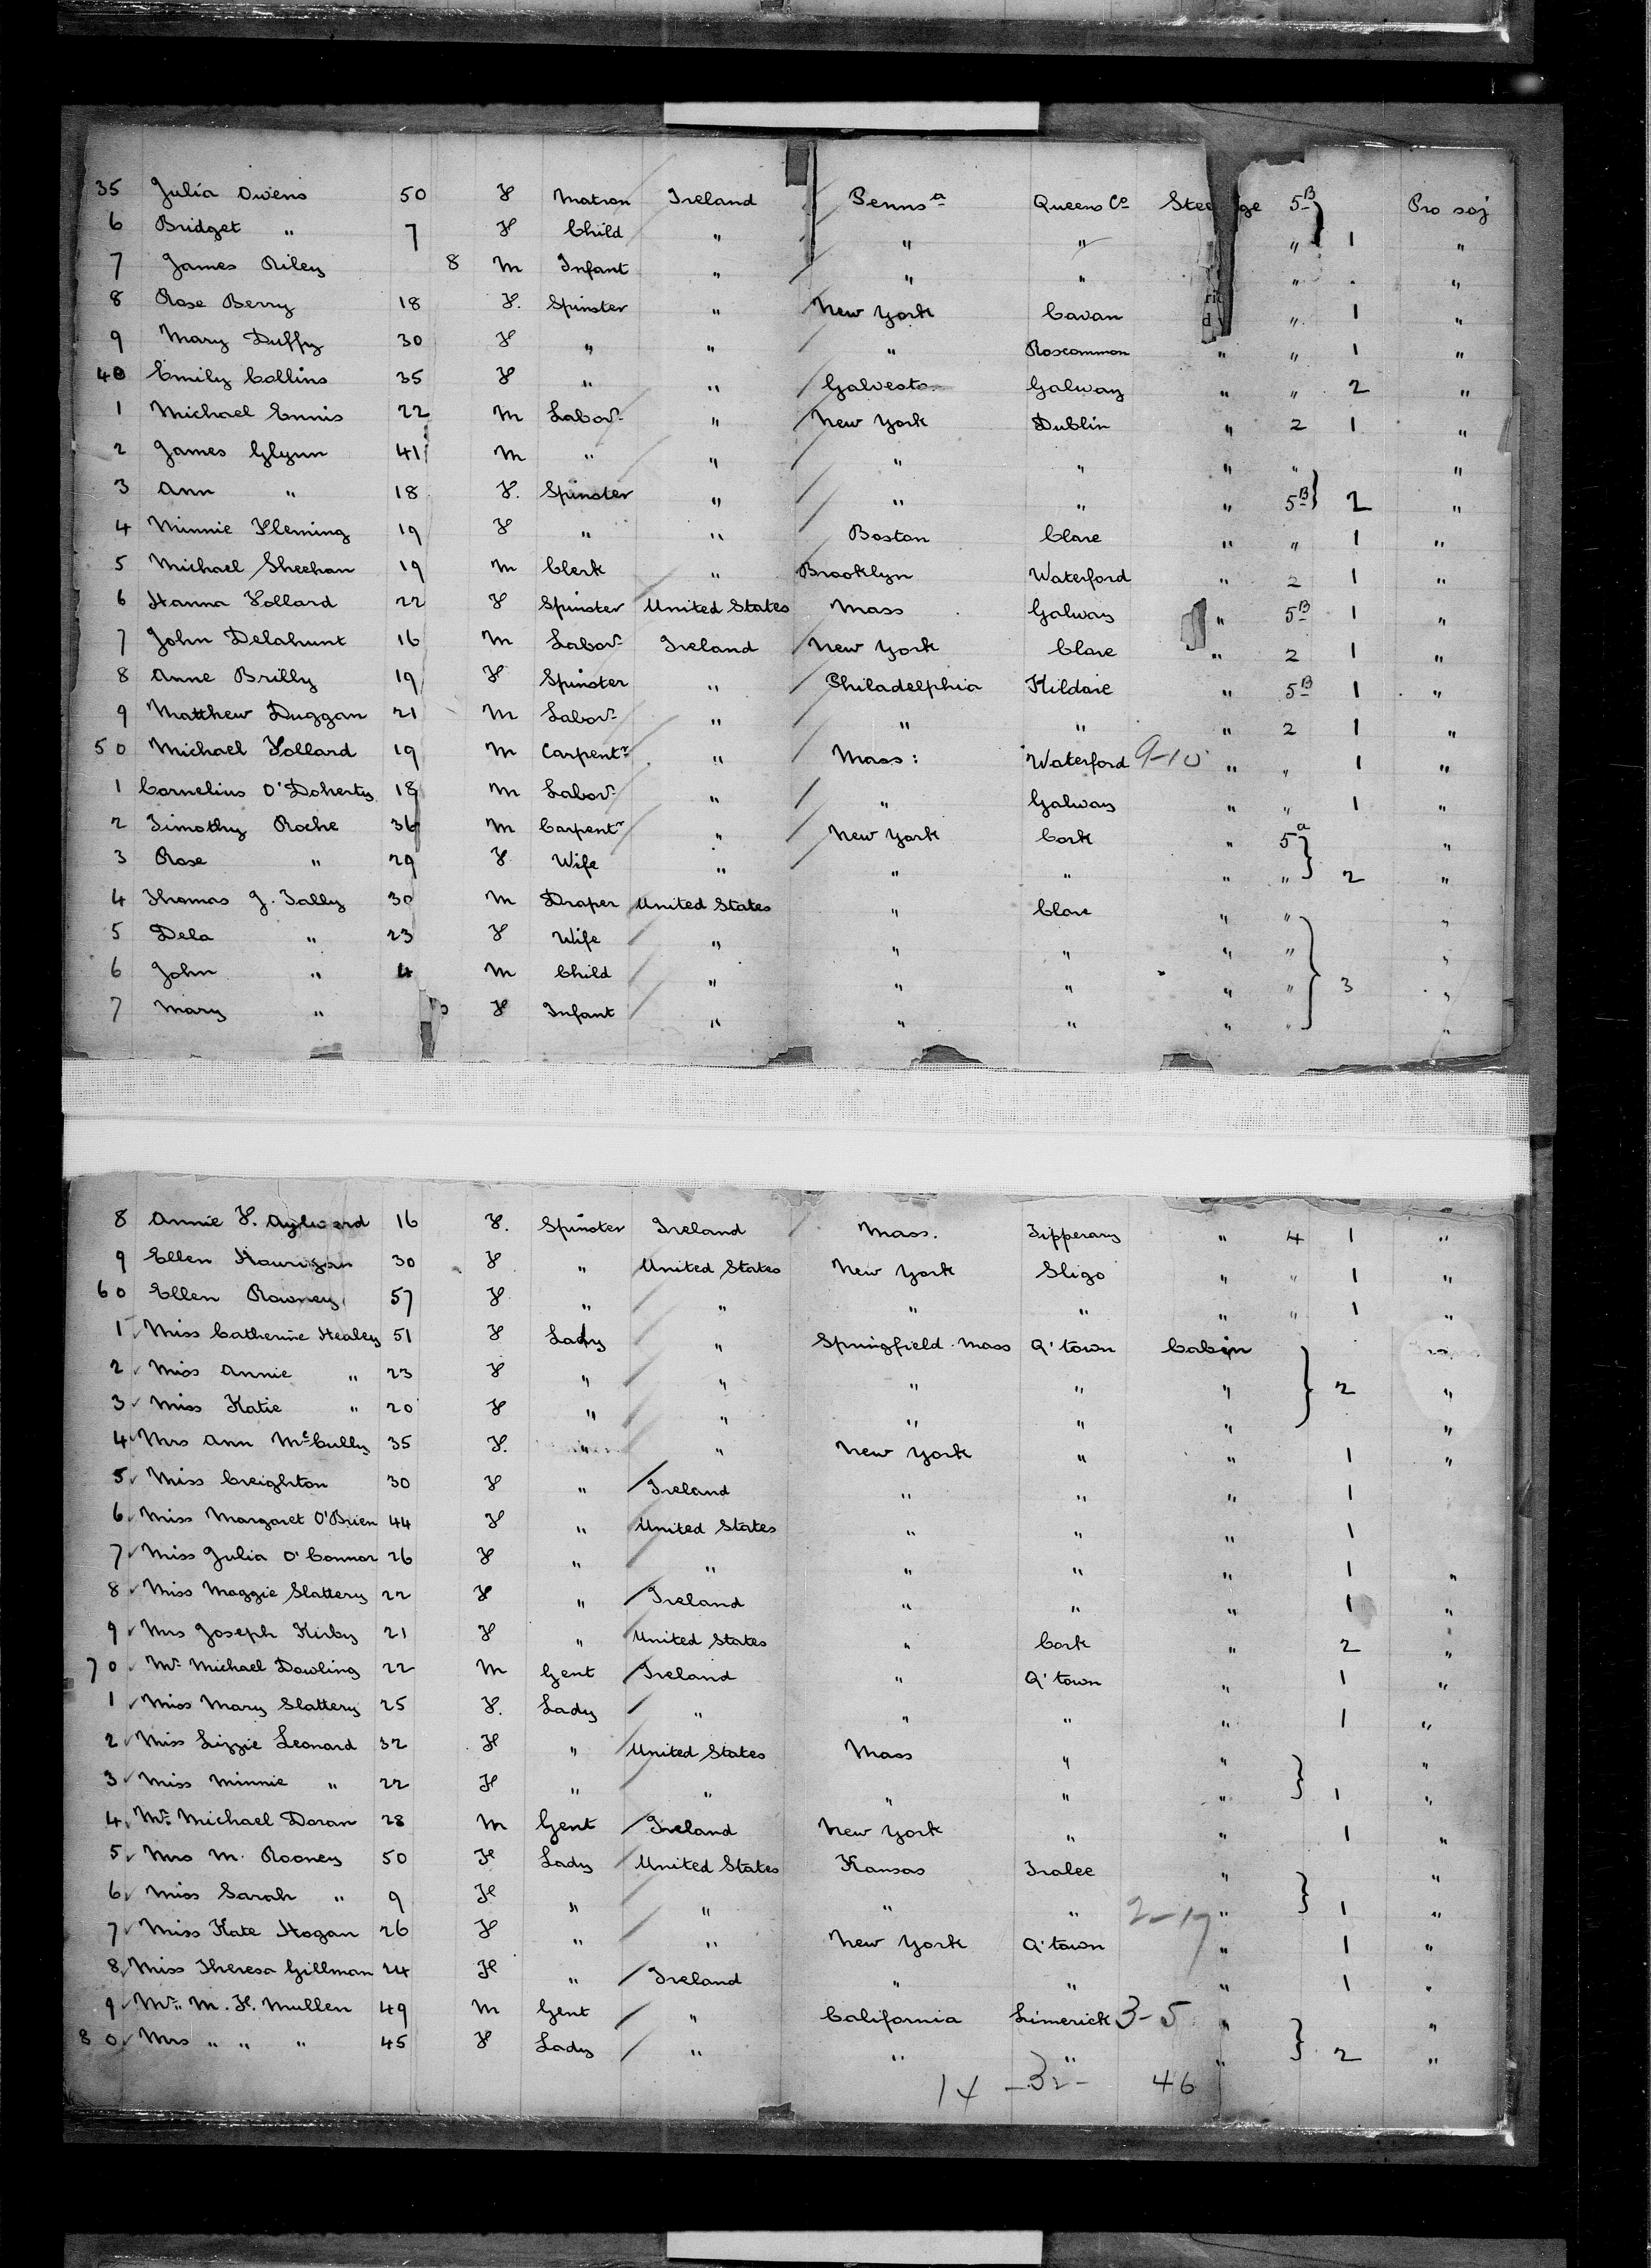 35 Julia Owens 50 F Matron Ireland Pennsa Queens Co Steerage 5B Pro soj
6 Bridget " 7 F Child " " " " 1 "
7 James Riley 8 M Infant " " " " . "
8 Rose Berry 18 F. Spinster " New York Cavan " 1 "
9 Mary Duffy 30 F " " " Roscommon " " 1 "
40 Emily Collins 35 F " " Galvesto Galway " " 2 "
1 Michael Ennis 22 M Labor " New York Dublin " 2 1 "
2 James Glynn 41 M " " " " " " "
3 Ann " 18 F. Spinster " " " " 5B 2 "
4 Minnie Fleming 19 F " " Boston Clare " " 1 "
5 Michael Sheehan 19 M Clerk " Brooklyn Waterford " 2 1 "
6 Hanna Follard 22 F Spinster United States Mass Galway " 5B 1 "
7 John Delahunt 16 M Labor Ireland New York Clare " 2 1 "
8 Anne Brilly 19 F Spinster " Philadelphia Kildare " 5B 1 "
9 Matthew Duggan 21 M Labor " " " " 2 1 "
50 Michael Follard 19 M Carpentr " Mass: Waterford 9-10 " " 1 "
1 Cornelius O'Doherty 18 M Labor " " Galway " " 1 "
2 Timothy Roche 36 M Carpentr " New York Cork " 5a "
3 Rose " 29 F Wife " " " " " 2 "
4 Thomas J. Tally 30 M Draper United States " Clare " " "
5 Dela " 23 F Wife " " " " " "
6 John " 4 M Child " " " " " 3 "
7 Mary " F Infant " " " " " "
8 Annie F. Aylward 16 F. Spinster Ireland Mass. Tipperary " 4 1 "
9 Ellen Hourigan 30 F " United States New York Sligo " " 1 "
60 Ellen Rowney 57 F " " " " " " 1 "
1 Miss Catherine Healey 51 F Lady " Springfield Mass Q'town Cabin
2 Miss Annie " 23 F " " " " " 2 "
3 Miss Katie " 20 F " " " " " "
4 Mrs Ann McCully 35 F. " " New York " " 1 "
5 Miss Creighton 30 F " Ireland " " " 1
6 Miss Margaret O'Brien 44 F " United States " " " 1
7 Miss Julia O'Connor 26 F " " " " " 1 "
8 Miss Maggie Slattery 22 F " Ireland " " " 1 "
9 Mrs Joseph Kirby 21 F " United States " Cork " 2 "
70 Mr Michael Dowling 22 M Gent Ireland " Q'town " 1 "
1 Miss Mary Slattery 25 F. Lady " " " " 1 "
2 Miss Lizzie Leonard 32 F " United States Mass " " "
3 Miss Minnie " 22 F " " " " " 1 "
4 Mr Michael Doran 28 M Gent Ireland New York " " 1 "
5 Mrs M. Rooney 50 F Lady United States Kansas Tralee " "
6 Miss Sarah " 9 F " " " " 2-17 " 1 "
7 Miss Kate Hogan 26 F " " New York Q'town " 1 "
8 Miss Theresa Gillman 24 F " Ireland " " " 1 "
9 Mr M. F. Mullen 49 M Gent " California Limerick 3-5 " "
80 Mrs " " " 45 F Lady " " " " 2 "
14 -32- 46